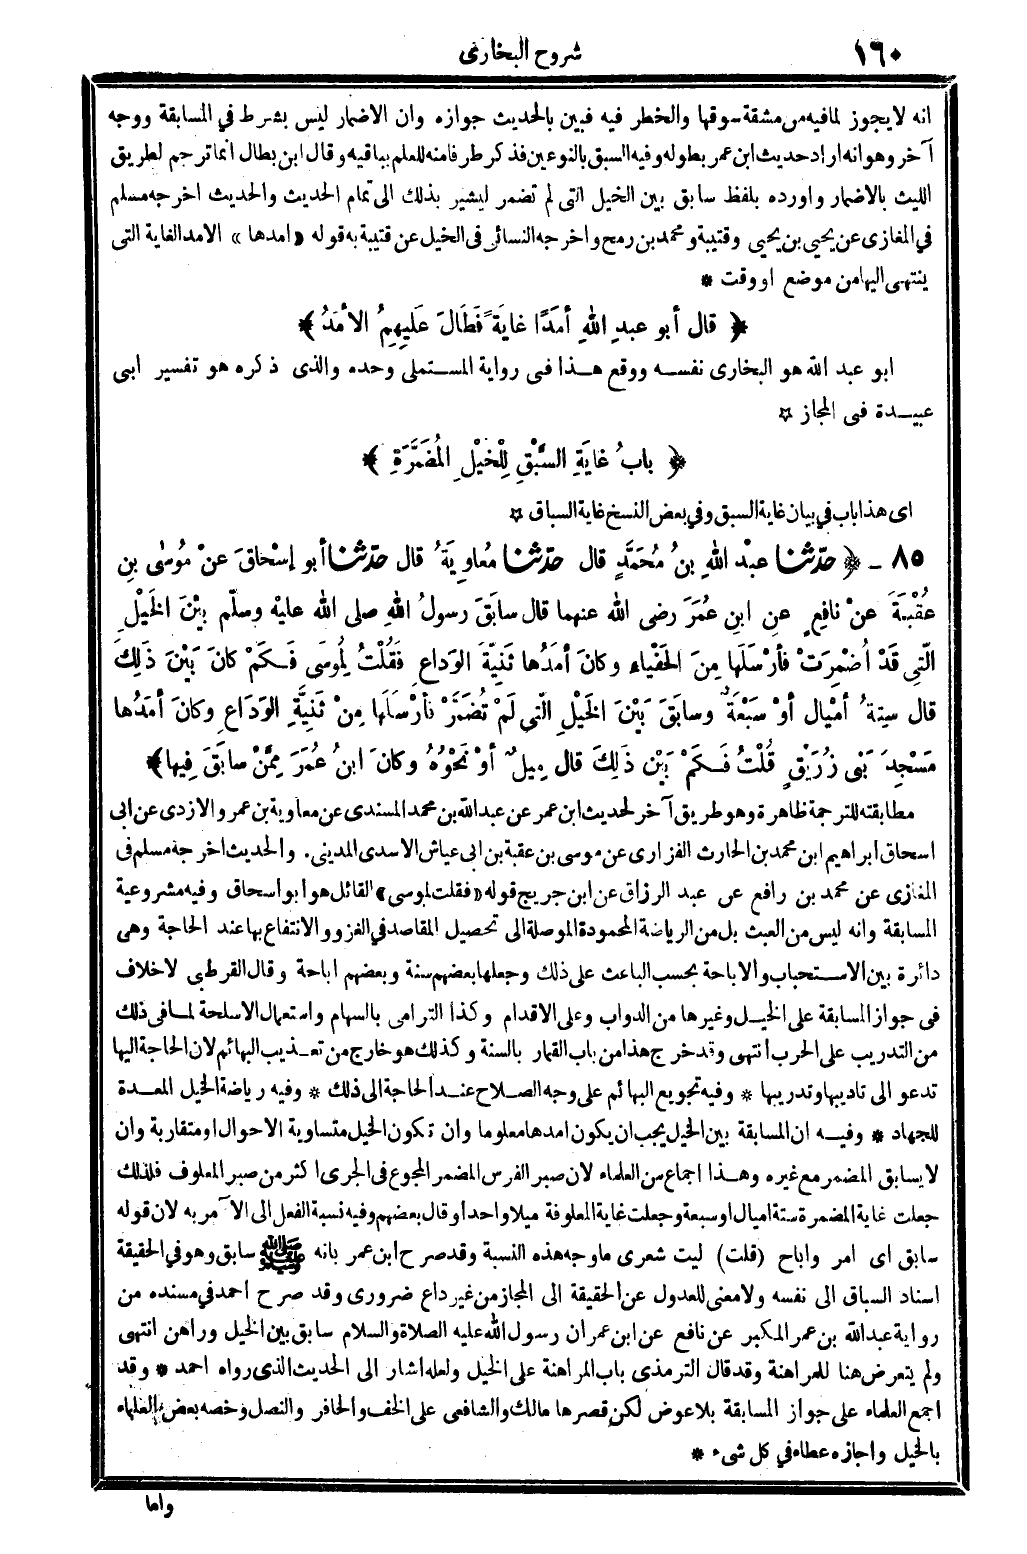 ١٦٠
شروح البخارى
انه لا يجوز لمافيه من مشقة سوقها والخطر فيه فبين بالحديث جوازه وان الاضمار ليس بشرط في المسابقة ووجه
آخر وهو انه اراد حديث ابن عمر بطوله وفيه السبق بالنوعين فذكر طرفامنه للعلم بباقيه وقال ابن بطال انما ترجم لطريق
الليث بالاضمار واورده بلفظ سابق بين الخيل التى لم تضمر ليشير بذلك الى تمام الحديث والحديث اخرجه مسلم
في المغازى عن يحيى بن يحيى وقتيبة ومحمد بن رمح واخرجه النسائى فى الخيل عن قتيبة به قوله «امدها» الامد الغاية التى
ينتهى اليها من موضع او وقت *
﴿ قال أبو عبدِ اللهِ أمَدًا غايَةً فَطَالَ عَلَيهِمُ الأمَدُ ﴾
ابو عبد الله هو البخارى نفسه ووقع هذا فى رواية المستملى وحده والذى ذكره هو تفسير ابى
عبيدة فى المجاز ☆
﴿ بابُ غايَةِ السَّبْقِ لِلْخَيْلِ المُضَمَّرَةِ ﴾
اى هذا باب في بيان غاية السبق وفي بعض النسخ غاية السباق ☆
٨٥ - ﴿ حدّثنا عبْد اللهِ بنُ مُحَمَّدٍ قال حدّثنا مُعاوِيَةُ قال حدّثنا أبو إسْحاقَ عنْ مُوسٰى بنِ
عُقْبَةَ عنْ نافِعٍ عنِ ابنِ عُمَرَ رضى الله عنهما قال سابَقَ رسولُ اللهِ صلى الله عليْه وسلّم بيْنَ الخَيْلِ
الَّتِى قَدْ أُضْمِرَتْ فأرْسَلَها مِنَ الحَفْياءِ وكانَ أمَدُها ثَنِيَّةَ الوَداعِ فَقُلْتُ لِمُوسَى فَكَمْ كانَ بَيْنَ ذٰلِكَ
قال سِتةُ أمْيال أوْ سَبْعَةٌ وسابَقَ بَيْنَ الخَيْلِ الَّتِى لَمْ تُضَمَّرْ فأرْسَلَها مِنْ ثَنِيَّةِ الوَدَاعِ وكانَ أمَدُها
مَسْجِدَ بَنِى زُرَيْقٍ قُلْتُ فَكَمْ بَيْنَ ذٰلِكَ قال مِيلٌ أوْ نَحْوُهُ وكانَ ابنُ عُمَرَ مِمَّنْ سابَقَ فِيها﴾
مطابقته للترجمة ظاهرة وهو طريق آخر لحديث ابن عمر عن عبد الله بن محمد المسندى عن معاوية بن عمرو الازدى عن ابى
اسحاق ابراهيم ابن محمد بن الحارث الفزارى عن موسى بن عقبة بن ابى عياش الاسدى المدينى. والحديث اخرجه مسلم فى
المغازى عن محمد بن رافع عن عبد الرزاق عن ابن جريج قوله «فقلت لموسى» القائل هو ابو اسحاق وفيه مشروعية
المسابقة وانه ليس من العبث بل من الرياضة المحمودة الموصلة الى تحصيل المقاصد في الغزو والانتفاع بها عند الحاجة وهى
دائرة بين الاستحباب والاباحة بحسب الباعث على ذلك وجعلها بعضهم سنة وبعضهم اباحة وقال القرطبى لا خلاف
فى جواز المسابقة على الخيل وغيرها من الدواب وعلى الاقدام وكذا الترامى بالسهام واستعمال الاسلحة لما فى ذلك
من التدريب على الحرب انتهى وقد خرج هذا من باب القمار بالسنة وكذلك هو خارج من تعذيب البهائم لان الحاجة اليها
تدعو الى تاديبها وتدريبها * وفيه تجويع البهائم على وجه الصلاح عند الحاجة الى ذلك * وفيه رياضة الخيل المعدة
للجهاد * وفيه ان المسابقة بين الخيل يجب ان يكون امدها معلوما وان تكون الخيل متساوية الاحوال او متقاربة وان
لا يسابق المضمر مع غيره وهذا اجماع من العلماء لان صبر الفرس المضمر المجوع فى الجرى اكثر من صبر المعلوف فلذلك
جعلت غاية المضمرة ستة اميال او سبعة وجعلت غاية المعلوفة ميلا واحدا وقال بعضهم وفيه نسبة الفعل الى الآمر به لان قوله
سابق اى امر واباح (قلت) ليت شعرى ما وجه هذه النسبة وقد صرح ابن عمر بانه ﷺ سابق وهو في الحقيقة
اسناد السباق الى نفسه ولا معنى للعدول عن الحقيقة الى المجاز من غير داع ضرورى وقد صرح احمد في مسنده من
رواية عبد الله بن عمر المكبر عن نافع عن ابن عمر ان رسول الله عليه الصلاة والسلام سابق بين الخيل وراهن انتهى
ولم يتعرض هنا للمراهنة وقد قال الترمذى باب المراهنة على الخيل ولعله اشار الى الحديث الذى رواه احمد * وقد
اجمع العلماء على جواز المسابقة بلا عوض لكن قصرها مالك والشافعى على الخف والحافر والنصل وخصه بعض العلماء
بالخيل واجازه عطاء في كل شىء *
واما